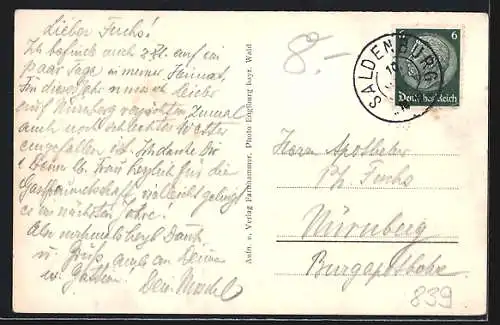 Lieber Fuchs!
Ich befinde mich z. Zt. auf ein
paar Tage in meiner Heimat.
Für dieses Jahr muss ich leider
auf Nürnberg verzichten zumal
auch noch schlechtes Wetter
eingefallen ist. Ich danke Dir
u. Deiner lb. Frau herzlich für die
Gastfreundschaft, vielleicht gelingt
es im nächsten Jahre.
Also nochmals herzl. Dank
u. Gruß auch an Deine
Dein
Aufn. u. Verlag Farnhammer, Photo Englburg bayr. Wald
8.-
SALDENBURG
6
Deutsches Reich
Herrn Apotheker
Fuchs
Nürnberg
Burgapotheke
839